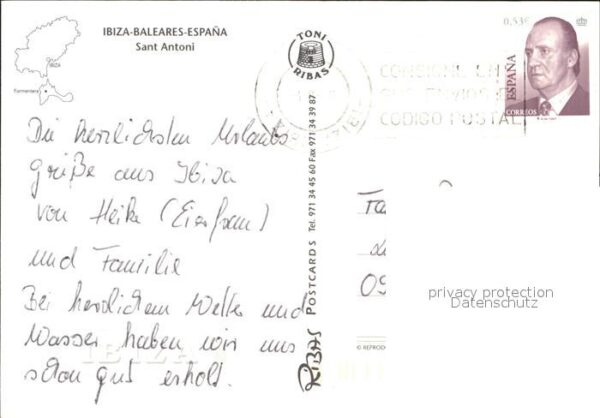 IBIZA-BALEARES-ESPAÑA
Sant Antoni
IBIZA
Formentera
TONI
RIBAS
0,53€
ESPAÑA
CORREOS
CONSIGNE EN
SUS ENVIOS E
CODIGO POSTAL
Die herzlichsten Urlaubs
grüße aus Ibiza
von Heike (Eierfrau)
und Familie
Bei herrlichem Wetter und
Wasser haben wir uns
schon gut erholt.
IBIZA
RIBAS POSTCARDS Tel. 971 34 45 60 Fax 971 34 39 87
Fa
09
privacy protection
Datenschutz
© REPROD